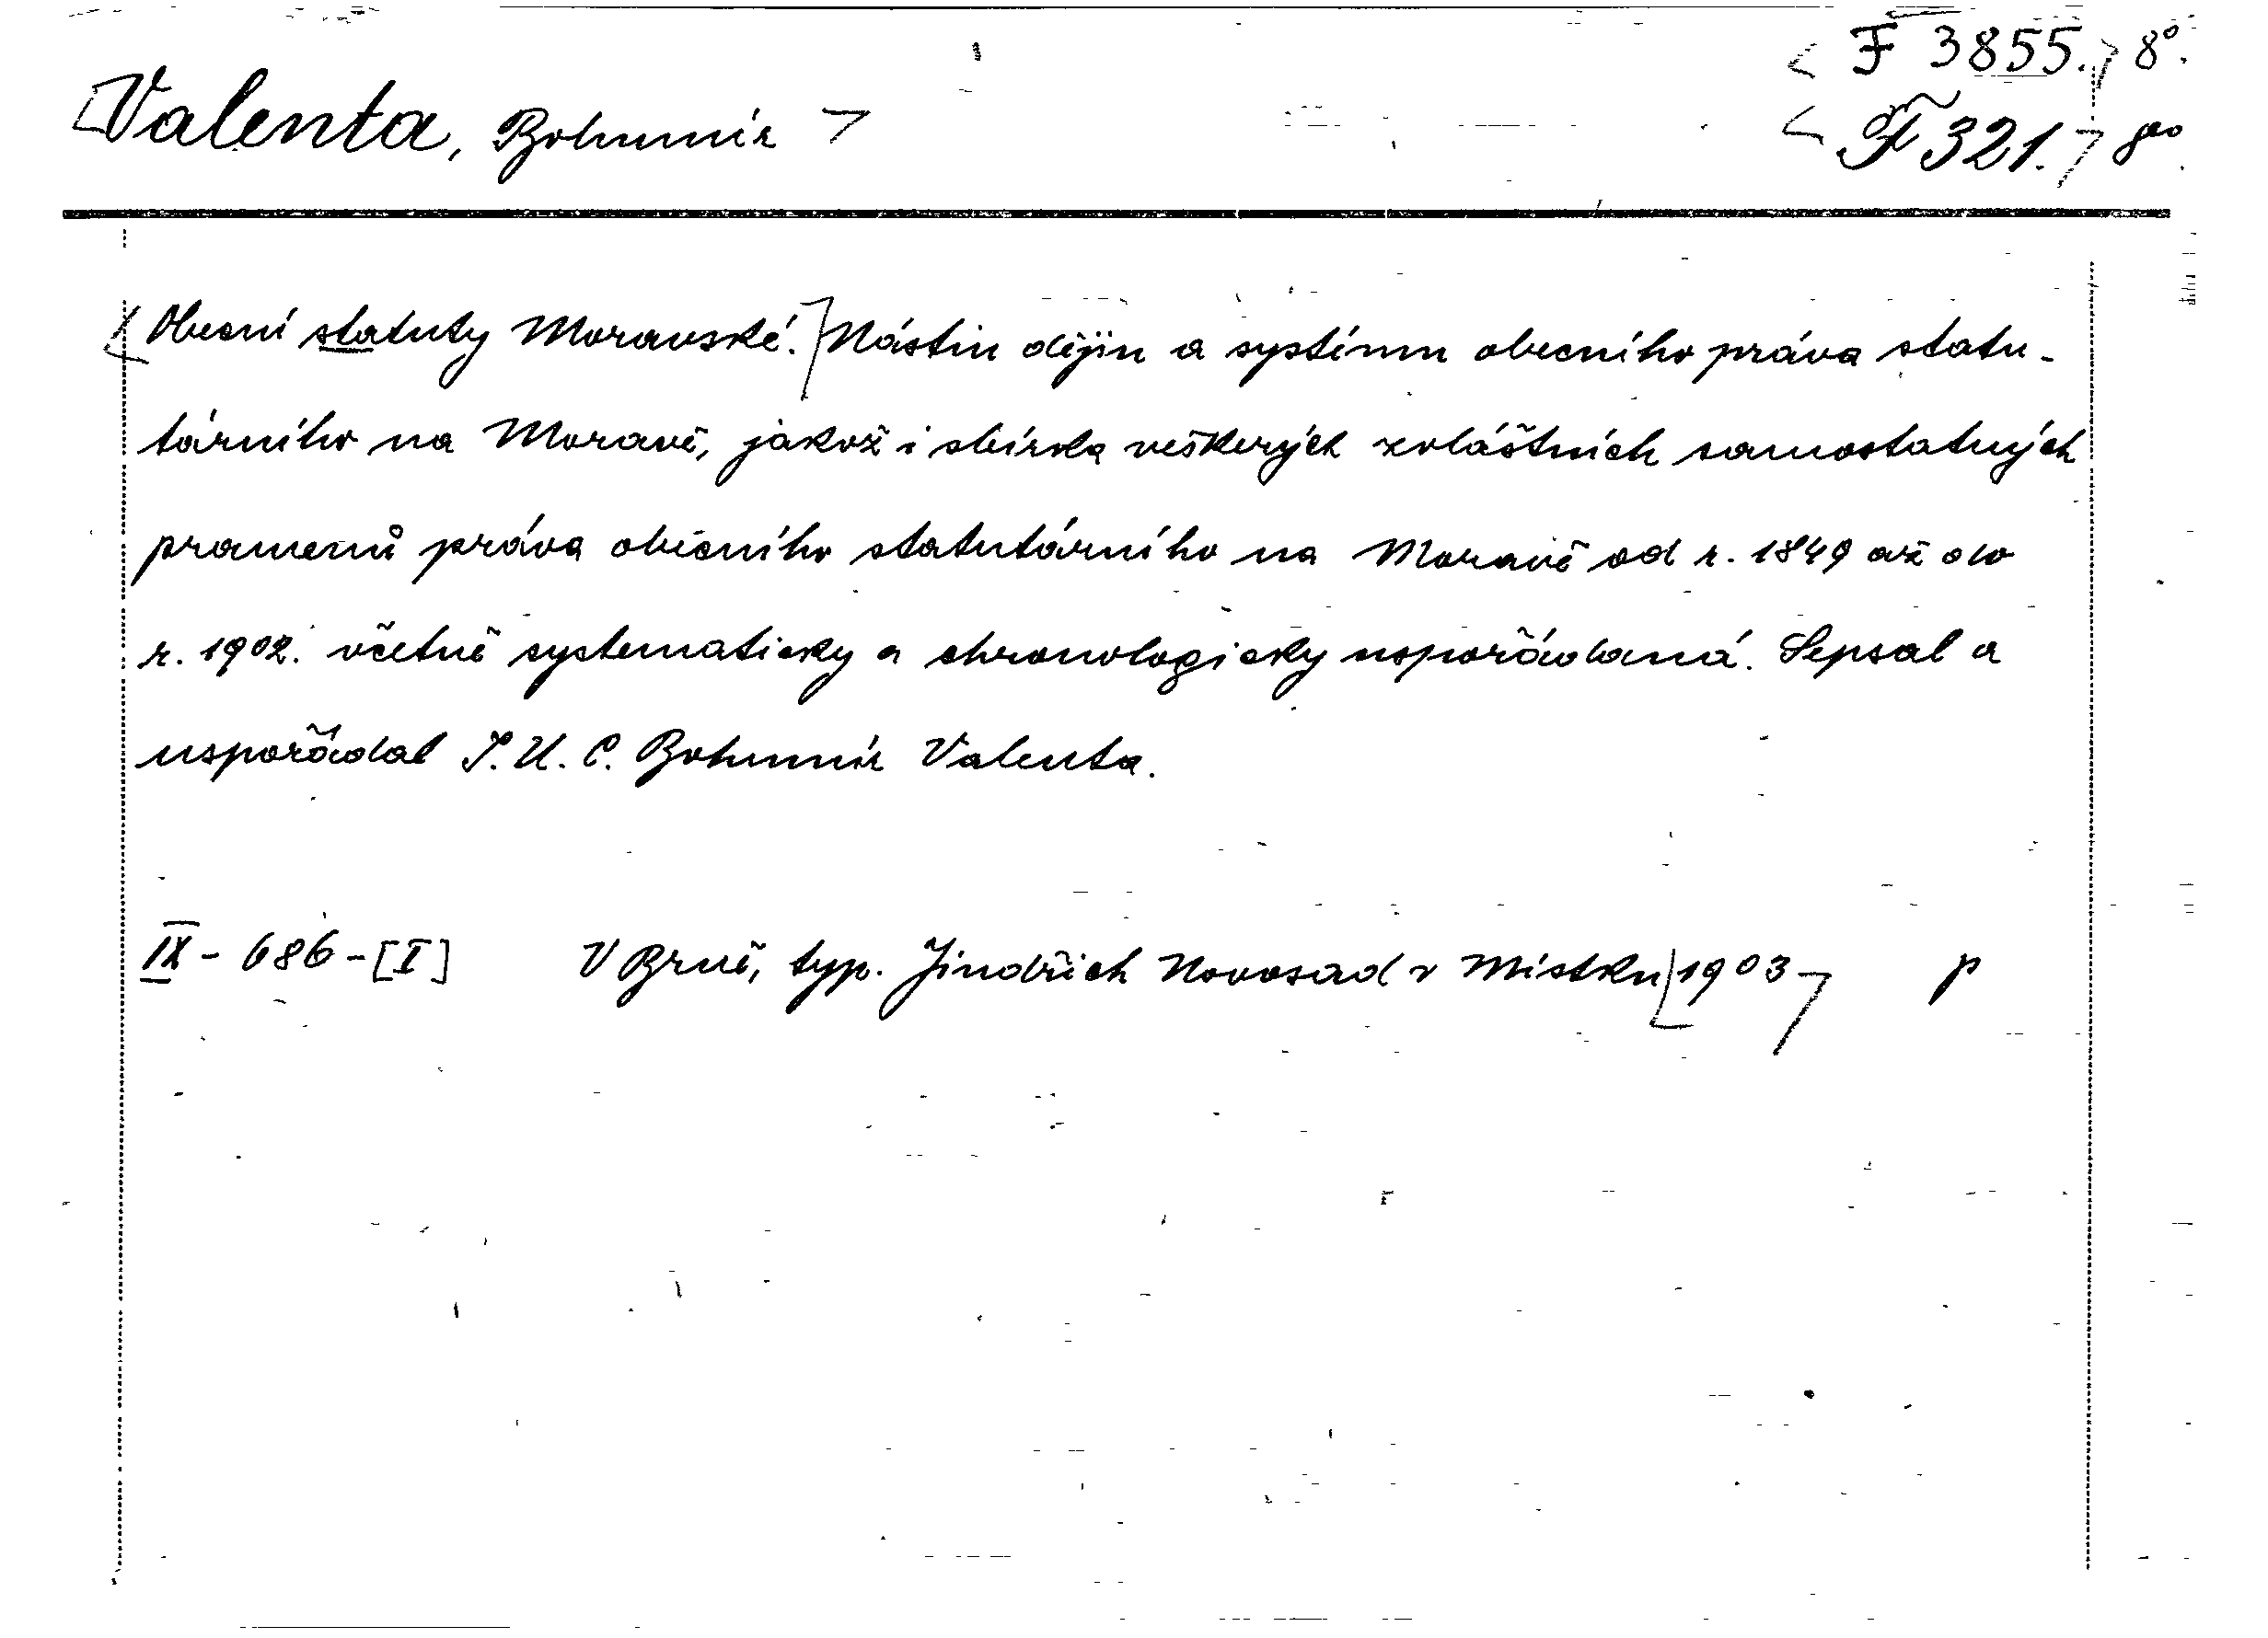 F 3855. 8°.
Valenta, Bohumír
F 321. 8°.
Obecní statuty Moravské. Nástin dějin a systému obecního práva statu-
tárního na Moravě, jakož i sbírka veškerých zvláštních samostatných
pramenů práva obecního statutárního na Moravě od r. 1849 až do
r. 1902. včetně systematicky a chronologicky uspořádaná. Sepsal a
uspořádal J. U. C. Bohumír Valenta.
IX - 686 - [I] V Brně, typ. Jindřich Novosad v Místku 1903 p